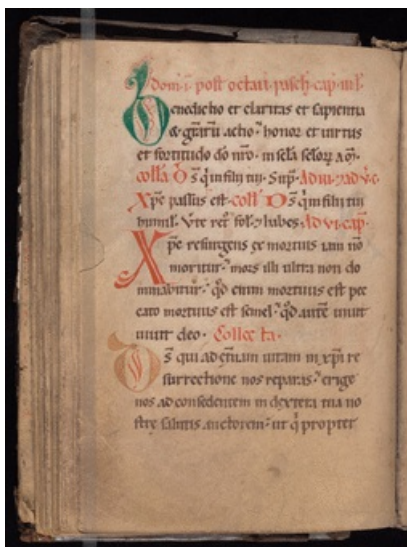 dom· i· post octav pasch· cap· iii·
Benedictio et claritas et sapientia
& gratiarū actio· honor et uirtus
et fortitudo dō nrō· in scla sclorꝝ am̄·
collā Ds̄ q̇ in filii tui· Sup̄·
Xp̄c passus est· coll Ds̄ q̇ in filii tui
humil· Ad vi· cap̄·
Xp̄c resurgens ex mortuis iam nō
moritur· mors illi ultra non do
minabitur· qd̄ enim mortuus est pec
cato mortuus est semel· qd̄ autē uiuit
uiuit deo· Collec ta·
Ds̄ qui ad ęternam uitam in xp̄i re
surrectione nos reparas· erige
nos ad consedentem in dextera tua no
strę salutis auctorem· ut q̇ propter